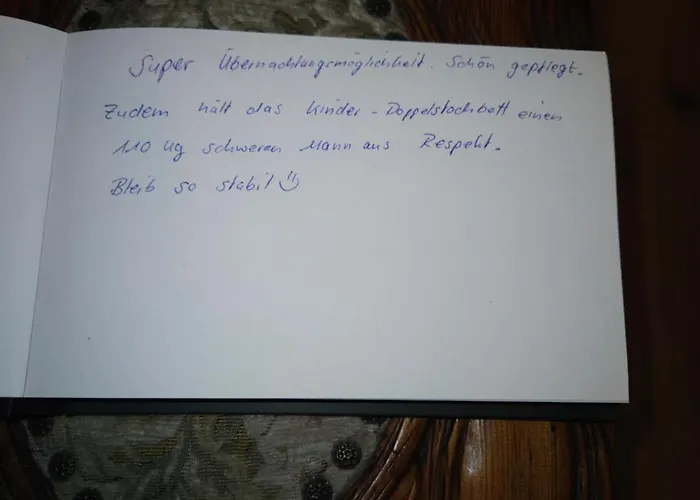 Super Übernachtungsmöglichkeit. Schön gepflegt.
Zudem hält das Kinder-Doppelstockbett einen
110 kg schweren Mann aus Respekt.
Bleib so stabil